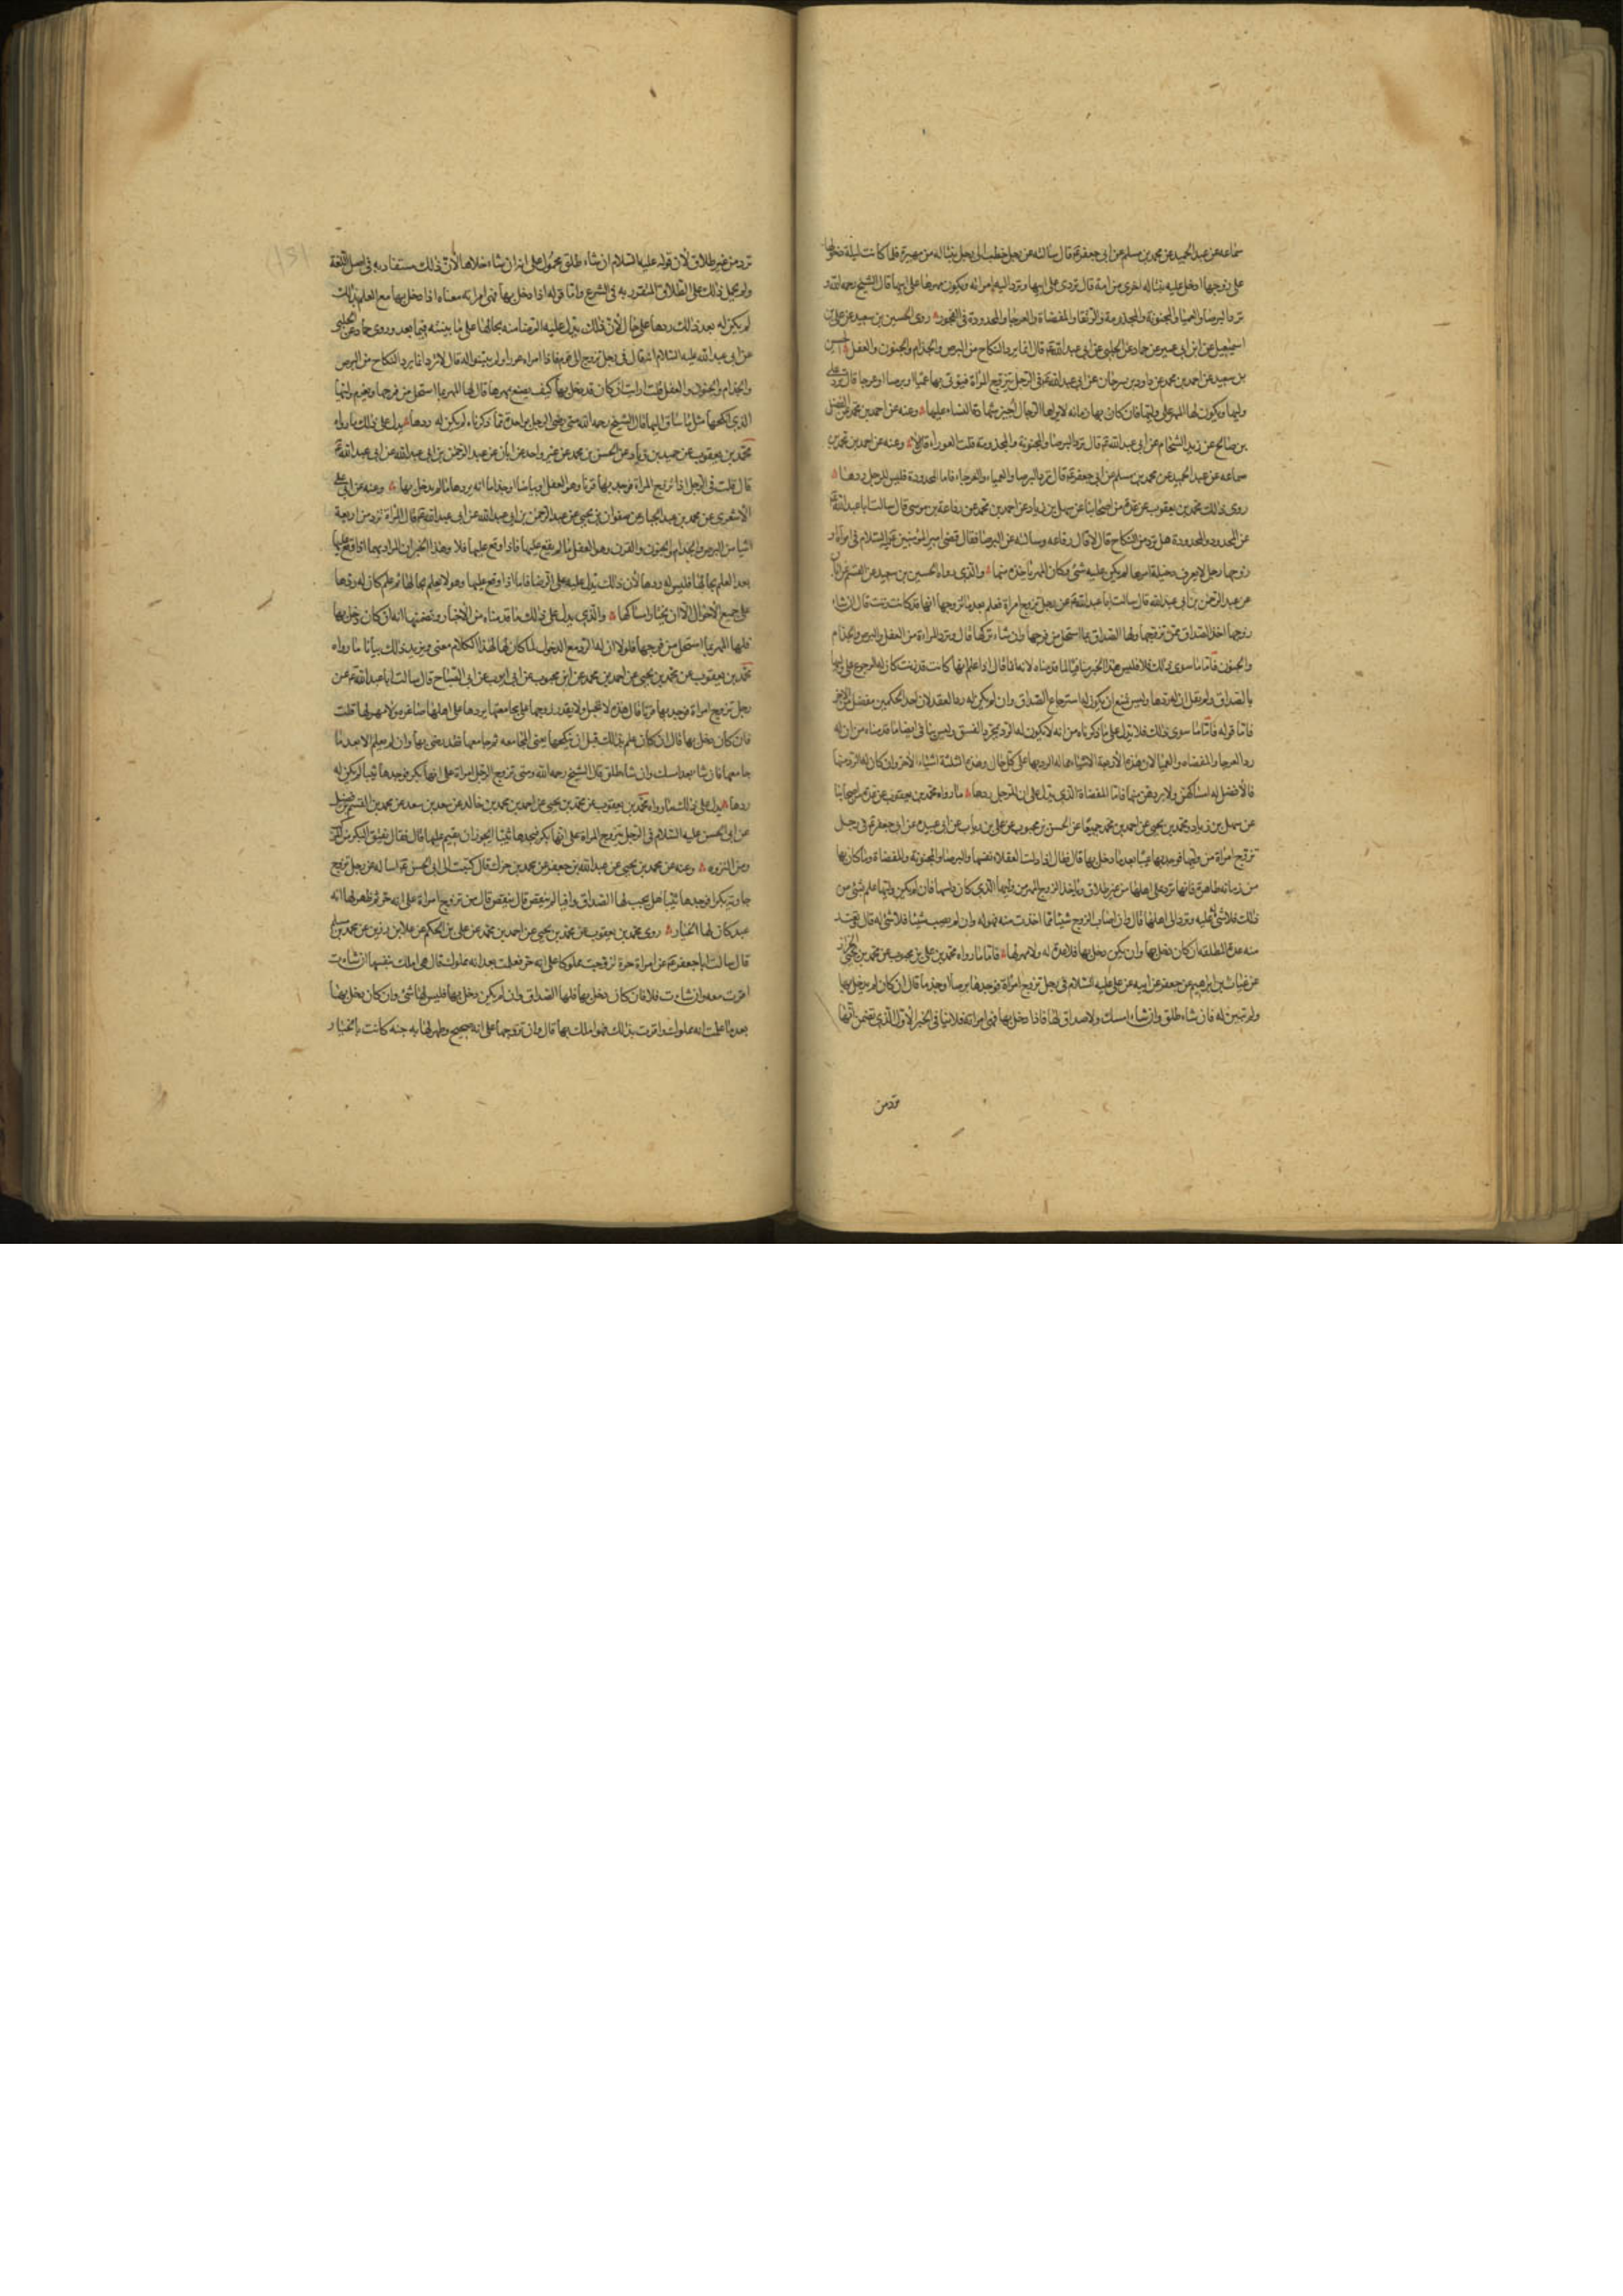 سماعه عن عبد الحميد عن محمد بن مسلم عن ابى جعفر ع قال سالته عن رجل خطب الى رجل بنتا له من مهيرة فلما كانت ليلة دخولها
على زوجها ادخل عليه بنتا له اخرى من امة قال تردى على ابيها وترد اليه امراته ويكون مهرها على ابيها قال الشيخ رحمه الله و
ترد البرصا والعميا والمجنونة والمجذومة والرتقا والمفضاة والعرجا والمحدودة فى الفجور روى الحسين بن سعيد عن على بن
اسمعيل عن ابن ابى عمير عن حماد عن الحلبى عن ابى عبد الله ع قال انما يرد النكاح من البرص والجذام والجنون والعفل الحسين
بن سعيد عن احمد بن محمد عن داود بن سرحان عن ابى عبد الله ع فى الرجل يتزوج المراة فيؤتى بها عميا او برصا او عرجا قال ترد على
وليها ويكون لها المهر على وليها فان كان بها زمانه لا يراها الرجال اجيز شهادة النساء عليها وعنه عن احمد بن محمد عن المفضل
بن صالح عن زيد الشحام عن ابى عبد الله ع قال ترد البرصا والمجنونة والمجذومة قلت العوراء قال لا وعنه عن احمد بن محمد بن
سماعه عن عبد الحميد عن محمد بن مسلم عن ابى جعفر ع قال ترد البرصا والعمياء والعرجاء فاما المحدودة فليس للرجل ردها
روى ذلك محمد بن يعقوب عن عدة من اصحابنا عن سهل بن زياد عن احمد بن محمد عن رفاعة بن موسى قال سالت ابا عبد الله ع
عن المحدود والمحدودة هل ترد من النكاح قال لا قال رفاعه وسالته عن البرصا فقال قضى امير المؤمنين عليه السلام فى امراة
زوجها رجل لا يعرف دخيلة امرها لم يكن عليه شئ وكان المهر ياخذه منها والذى رواه الحسين بن سعيد عن القسم عن ابان
عن عبد الرحمن بن ابى عبد الله قال سالت ابا عبد الله ع عن رجل تزوج امراة فعلم بعد ما تزوجها انها قد كانت زنت قال ان شاء
زوجها اخذ الصداق ممن تزوجها ولها الصداق بما استحل من فرجها وان شاء تركها قال وترد المراة من العفل والبرص والجذام
والجنون فاما ما سوى ذلك فلا فليس هذا الخبر منافيا لما قدمناه لانه انما قال اذا علم انها كانت قد زنت كان له الرجوع على وليها
بالصداق ولم يقل ان له ردها وليس يمتنع ان يكون له استرجاع الصداق وان لم يكن له رد العقد لان احد الحكمين منفصل من الاخر
فاما قوله فاما ما سوى ذلك فلا يدل على ما ذكرناه من انه لا يكون له الرد بمجرد الفسق وليس ينافى ايضا ما قدمناه من ان له
رد العرجا والمفضاه والعميا لان هذه الاربعة الاشياء مما له الرد بها على كل حال وهذه الثلثة اشياء الاخر وان كان له الرد منها
فالافضل له امساكهن ولا يردهن منها فاما المفضاة الذى يدل على ان للرجل ردها ما رواه محمد بن يعقوب عن عدة من اصحابنا
عن سهل بن زياد ومحمد بن يحيى عن احمد بن محمد جميعا عن الحسن بن محبوب عن على بن رياب عن ابى عبيده عن ابى جعفر ع فى رجل
تزوج امراة من وليها فوجد بها عيبا بعد ما دخل بها قال فقال اذا دلست العفلاء نفسها والبرصا والمجنونة والمفضاة وما كان بها
من زمانه ظاهرة فانها ترد على اهلها من غير طلاق وياخذ الزوج المهر من وليها الذى كان دلسها فان لم يكن وليها علم بشئ من
ذلك فلا شئ عليه وترد الى اهلها قال وان اصاب الزوج شيئا مما اخذت منه فهو له وان لم يصب شيئا فلا شئ له قال وتعتد
منه عدة المطلقه ان كان دخل بها وان لم يكن دخل بها فلا عدة له ولا مهر لها فاما ما رواه محمد بن على بن محبوب عن محمد بن يحيى الخزاز
عن غياث بن ابراهيم عن جعفر عن ابيه عن على عليه السلام فى رجل تزوج امراة فوجدها برصا او جذما قال ان كان لم يدخل بها
ولم تبين له فان شاء طلق وان شاء امسك ولا صداق لها فاذا دخل بها فهى امراته فلا ينافى الخبر الاول الذى تضمن انها
ترد من
ترد من غير طلاق لان قوله عليه السلام ان شاء طلق محمول على انه ان شاء خلاها لان ذلك مستفاد به فى اصل اللغة
ولم يحمل ذلك على الطلاق المتقرر به فى الشرع واما قوله اذا دخل بها فهى امراته معناه اذا دخل بها مع العلم بذلك
لم يكن له بعد ذلك ردها على حال لان ذلك يدل عليه الرضا منه بحالها على ما نبينه فيما بعد وروى حماد عن الحلبى
عن ابى عبد الله عليه السلام انه قال فى رجل تزوج الى قوم فاذا امراته عورا ولم يبينوا له قال لا ترد انما يرد النكاح من البرص
والجذام والجنون والعفل قلت ارايت ان كان قد دخل بها كيف يصنع بمهرها قال لها المهر بما استحل من فرجها ويغرم وليها
الذى انكحها مثل ما ساق اليها قال الشيخ رحمه الله متى رضى الرجل بواحدة مما ذكرناه لم يكن له ردها يدل على ذلك ما رواه
محمد بن يعقوب عن حميد بن زياد عن الحسن بن محمد عن غير واحد عن ابان عن عبد الرحمن بن ابى عبد الله عن ابى عبد الله ع
قال قلت فى الرجل اذا تزوج المراة فوجد بها قرنا وهو العفل او بياضا او جذاما انه يردها ما لم يدخل بها وعنه عن ابى على
الاشعرى عن محمد بن عبد الجبار عن صفوان بن يحيى عن عبد الرحمن بن ابى عبد الله عن ابى عبد الله ع قال المراة ترد من اربعة
اشيا من البرص والجذام والجنون والقرن وهو العفل ما لم يقع عليها فاذا وقع عليها فلا وهذا الخبران المراد بهما اذا وقع عليها
بعد العلم بحالها فليس له ردها لان ذلك يدل عليه على الرضا فاما اذا وقع عليها وهو لا يعلم بحالها ثم علم كان له ردها
على جميع الاحوال الا ان يختار امساكها والذى يدل على ذلك ما قدمناه من الاخبار وتضمنها انه ان كان دخل بها
فلها المهر بما استحل من فرجها فلولا ان له الرد مع الدخول لما كان لهذا الكلام معنى ويزيد ذلك بيانا ما رواه
محمد بن يعقوب عن محمد بن يحيى عن احمد بن محمد عن ابن محبوب عن ابى ايوب عن ابى الصباح قال سالت ابا عبد الله ع عن
رجل تزوج امراة فوجد بها قرنا قال هذه لا تحبل ولا يقدر زوجها على مجامعتها يردها على اهلها صاغرة ولا مهر لها قلت
فان كان دخل بها قال ان كان علم بذلك قبل ان ينكحها يعنى المجامعه ثم جامعها فقد رضى بها وان لم يعلم الا بعد ما
جامعها فان شا بعد امسك وان شا طلق قال الشيخ رحمه الله ومتى تزوج الرجل امراة على انها بكر فوجدها ثيبا لم يكن له
ردها يدل على ذلك ما رواه محمد بن يعقوب عن محمد بن يحيى عن احمد بن محمد بن خالد عن سعد بن سعد عن محمد بن القسم بن فضيل
عن ابى الحسن عليه السلام فى الرجل يتزوج المراة على انها بكر فيجدها ثيبا ايجوز ان يقيم عليها قال فقال تفتق البكر من المركب
ومن النزوه وعنه عن محمد بن يحيى عن عبد الله بن جعفر عن محمد بن جزك قال كتبت الى ابى الحسن ع اساله عن رجل تزوج
جارية بكرا فوجدها ثيبا هل يجب لها الصداق وافيا ام ينتقص قال ينتقص قال من تزوج امراة على انه حر فظهر لها انه
عبد كان لها الخيار روى محمد بن يعقوب عن محمد بن يحيى عن احمد بن محمد عن على بن الحكم عن علا بن رزين عن محمد بن مسلم
قال سالت ابا جعفر ع عن امراة حرة تزوجت مملوكا على انه حر فعلمت بعد انه مملوك قال هى املك بنفسها ان شاءت
اقرت معه وان شاءت فلا فان كان دخل بها فلها الصداق وان لم يكن دخل بها فليس لها شئ وان كان دخل بها
بعد ما علمت انه مملوك واقرت بذلك فهو املك بها قال وان تزوجها على انه صحيح وظهر لها به جنه كانت بالخيار